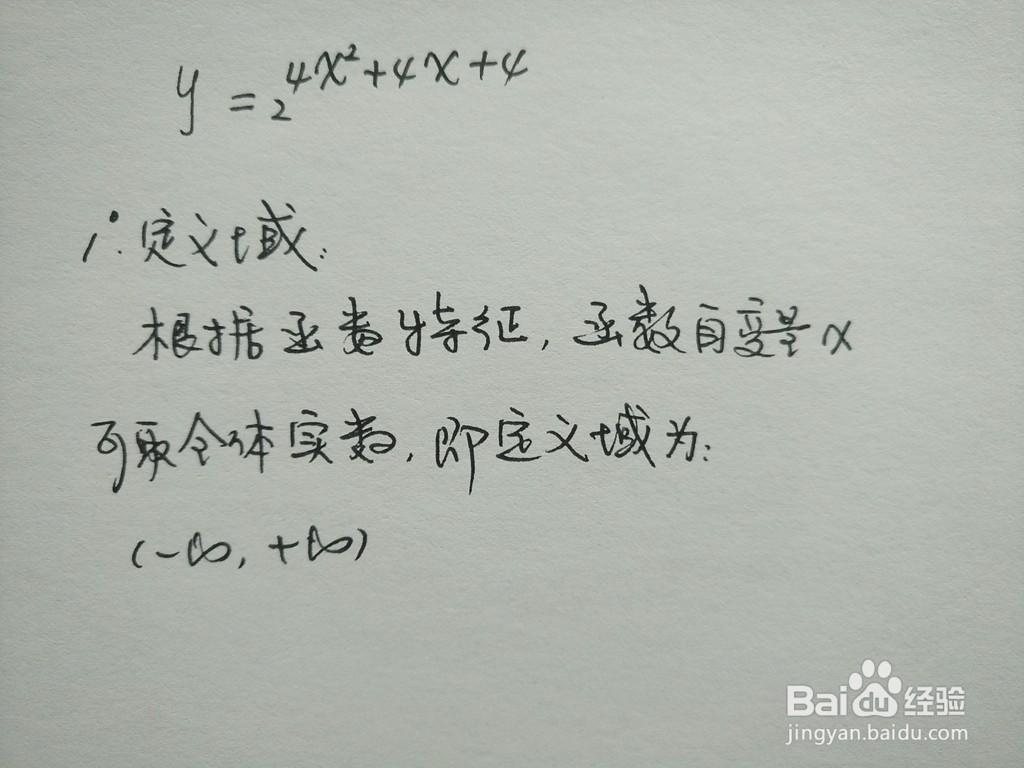 y = 2^{4x²+4x+4}
1. 定义域:
根据函数特征,函数自变量x
可取全体实数,即定义域为:
(-∞, +∞)
Baidu经验
jingyan.baidu.com